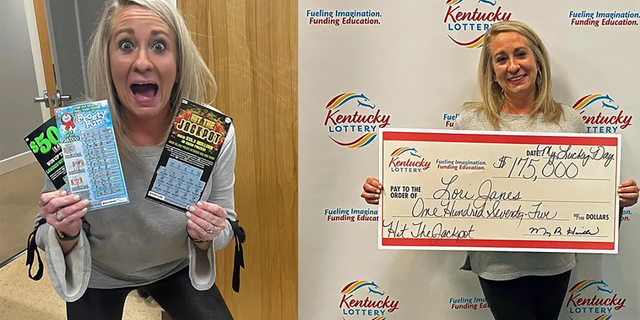 $50
Frosty
Fun
HIT THE
JACKPOT
Fueling Imagination.
Funding Education.
Kentucky
LOTTERY
Fueling Imagination.
Funding Education.
Kentucky
LOTTERY
Kentucky
LOTTERY
Fueling Imagination.
Funding Education.
Fueling Imagination.
Funding Education.
Kentucky
LOTTERY
Fueling Imagination.
Funding Education.
Kentucky
LOTTERY
Kentucky
LOTTERY
DATE: My Lucky Day
$175,000
PAY TO THE
ORDER OF Lori Janes
One Hundred Seventy-Five 00/100 DOLLARS
Hit The Jackpot